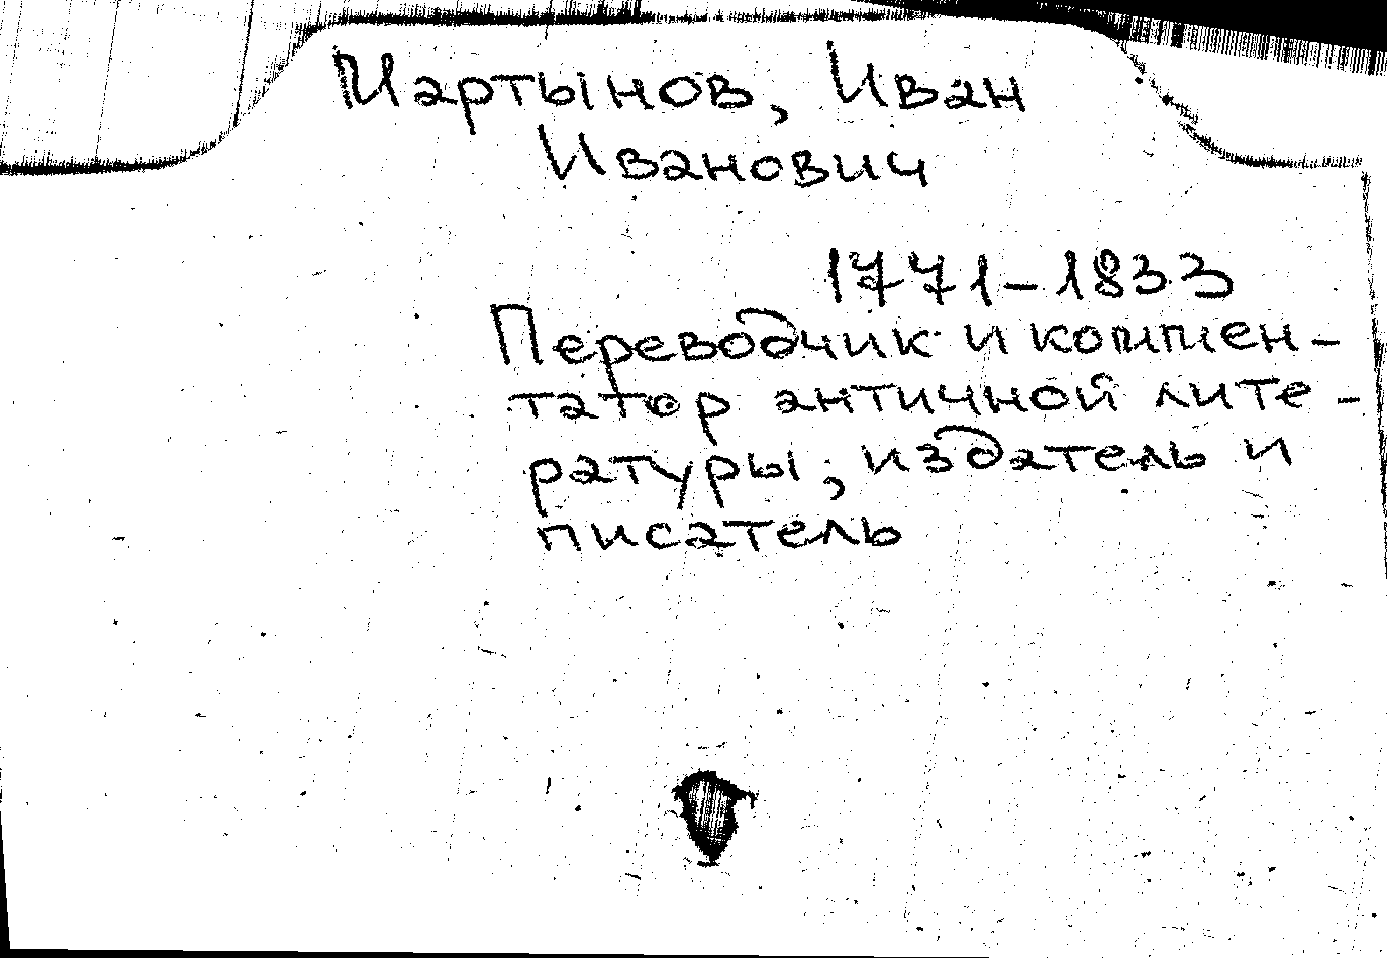 Мартынов, Иван
Иванович
1771-1833
Переводчик и коммен-
татор античной лите-
ратуры, издатель и
писатель